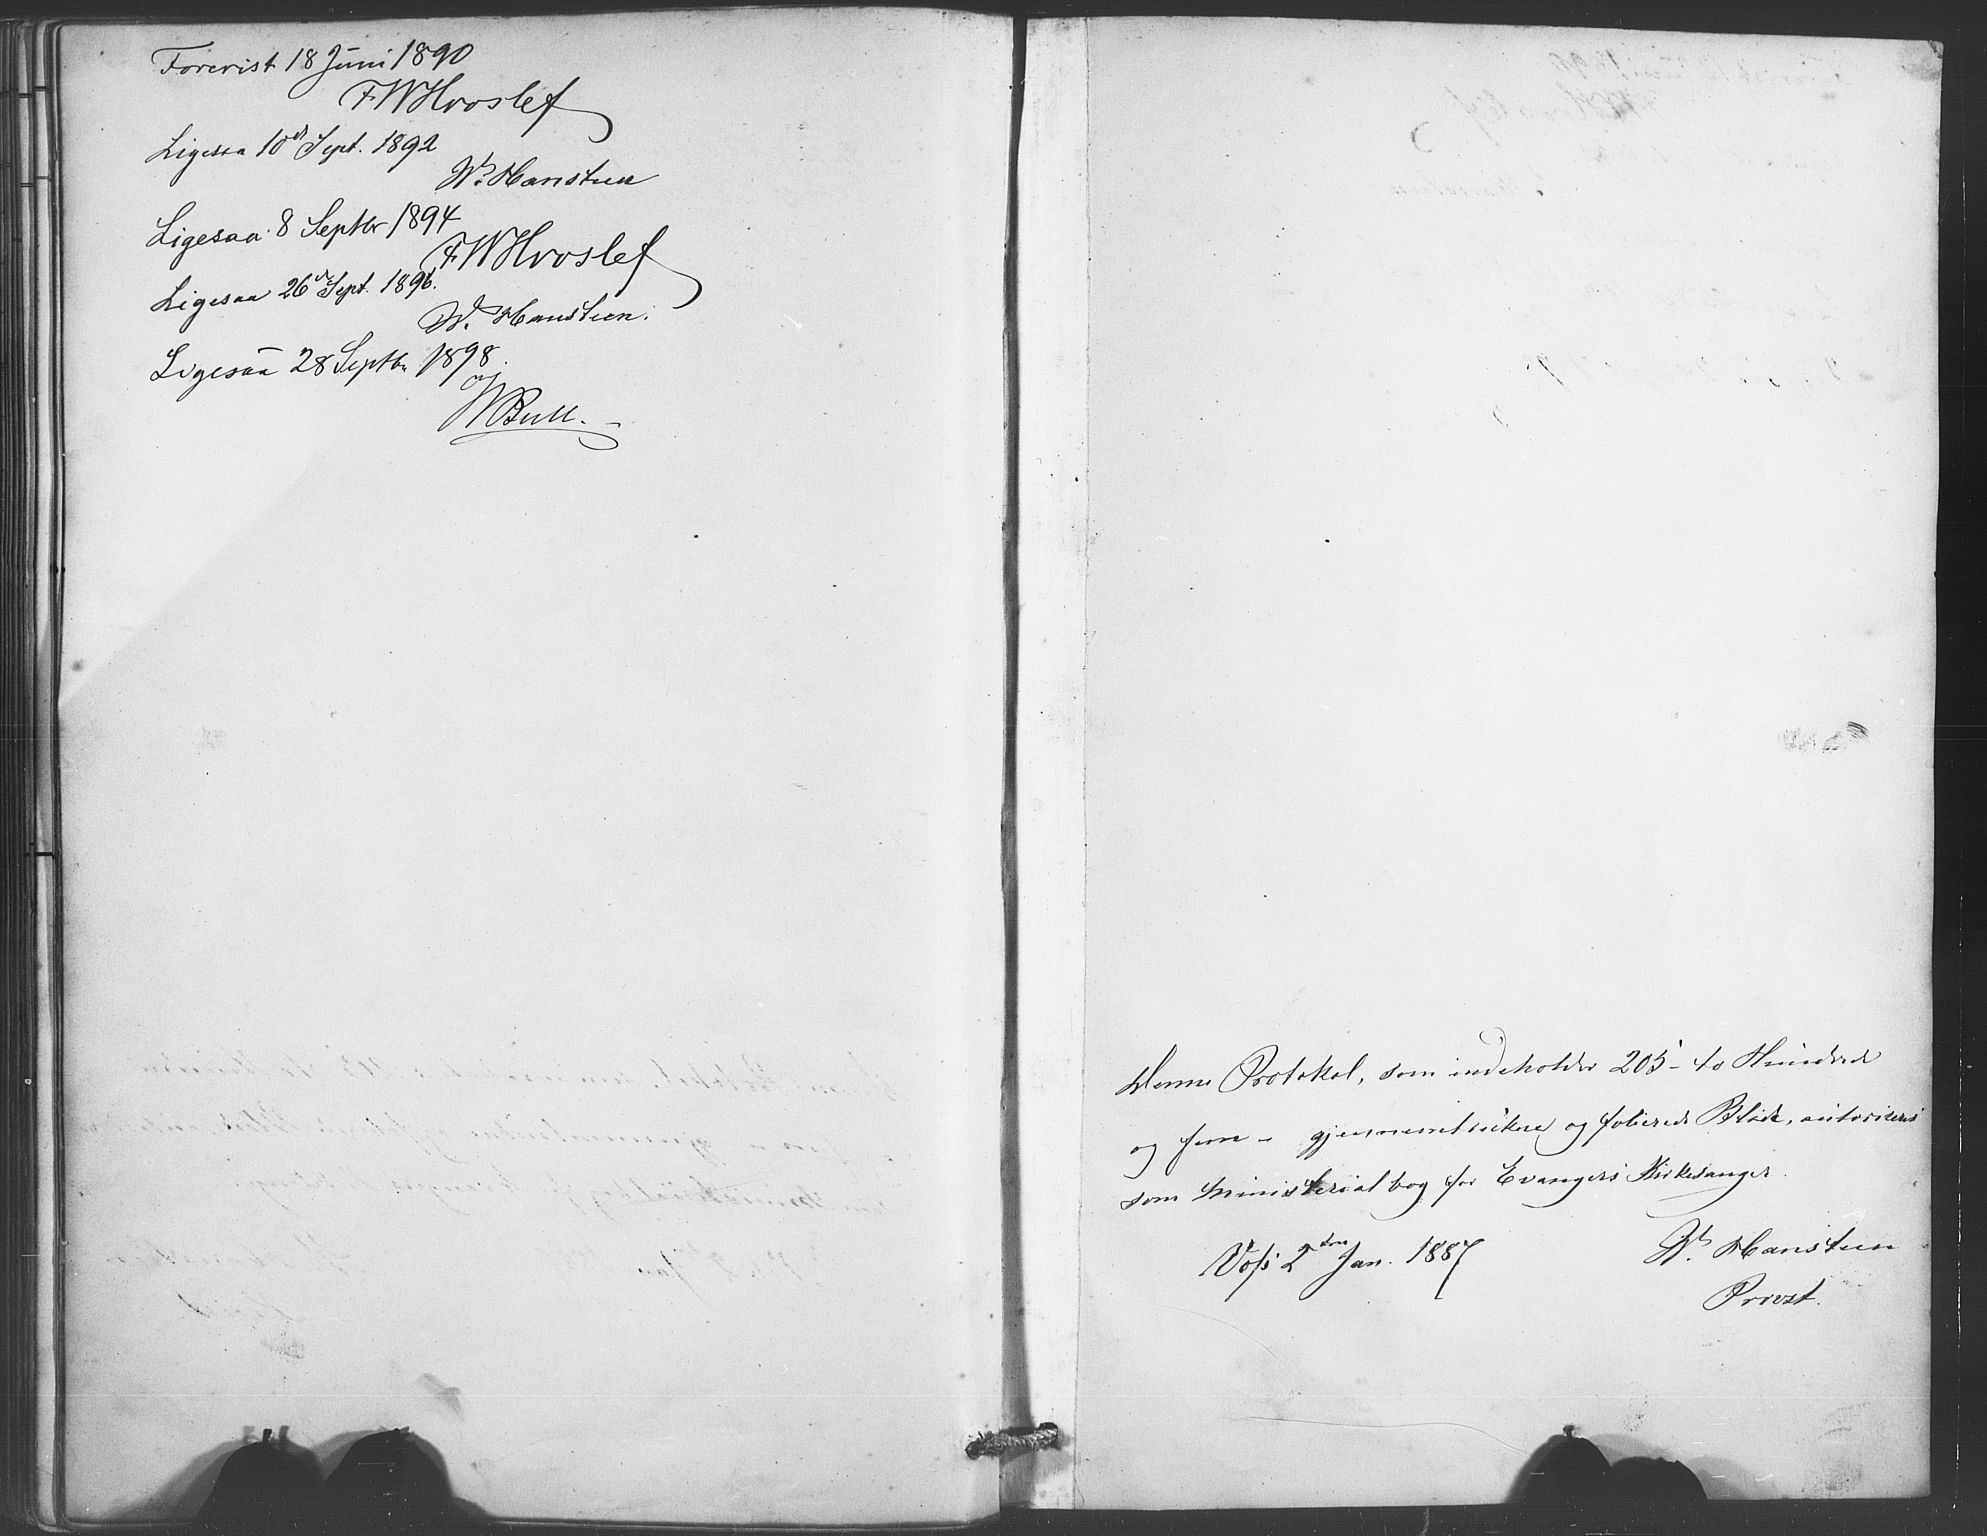 Forevist 18 Juni 1890
FWHvoslef
Ligesaa 10d Sept. 1892
W. Hansteen
Ligesaa 8 Septbr 1894
FWHvoslef
Ligesaa 26d Sept. 1896.
W. Hansteen.
Ligesaa 28 Septbr 1898.
WBull.
Denne Protokol, som indeholder 205 - to Hundrede
og fem - gjennemtrukne og folierede Blade, autoriseres
som Ministerialbog for Evangers Kirkesanger.
Voss 2den Jan. 1887
W. Hansteen
Provst.